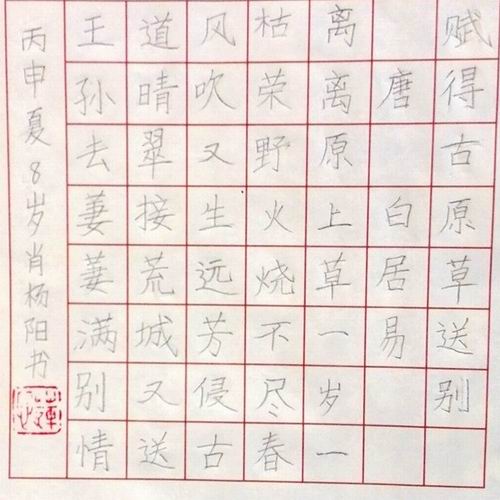 赋得古原草送别
唐 白居易
离离原上草一岁一
枯荣野火烧不尽春
风吹又生远芳侵古
道晴翠接荒城又送
王孙去萋萋满别情
丙申夏8岁肖杨阳书